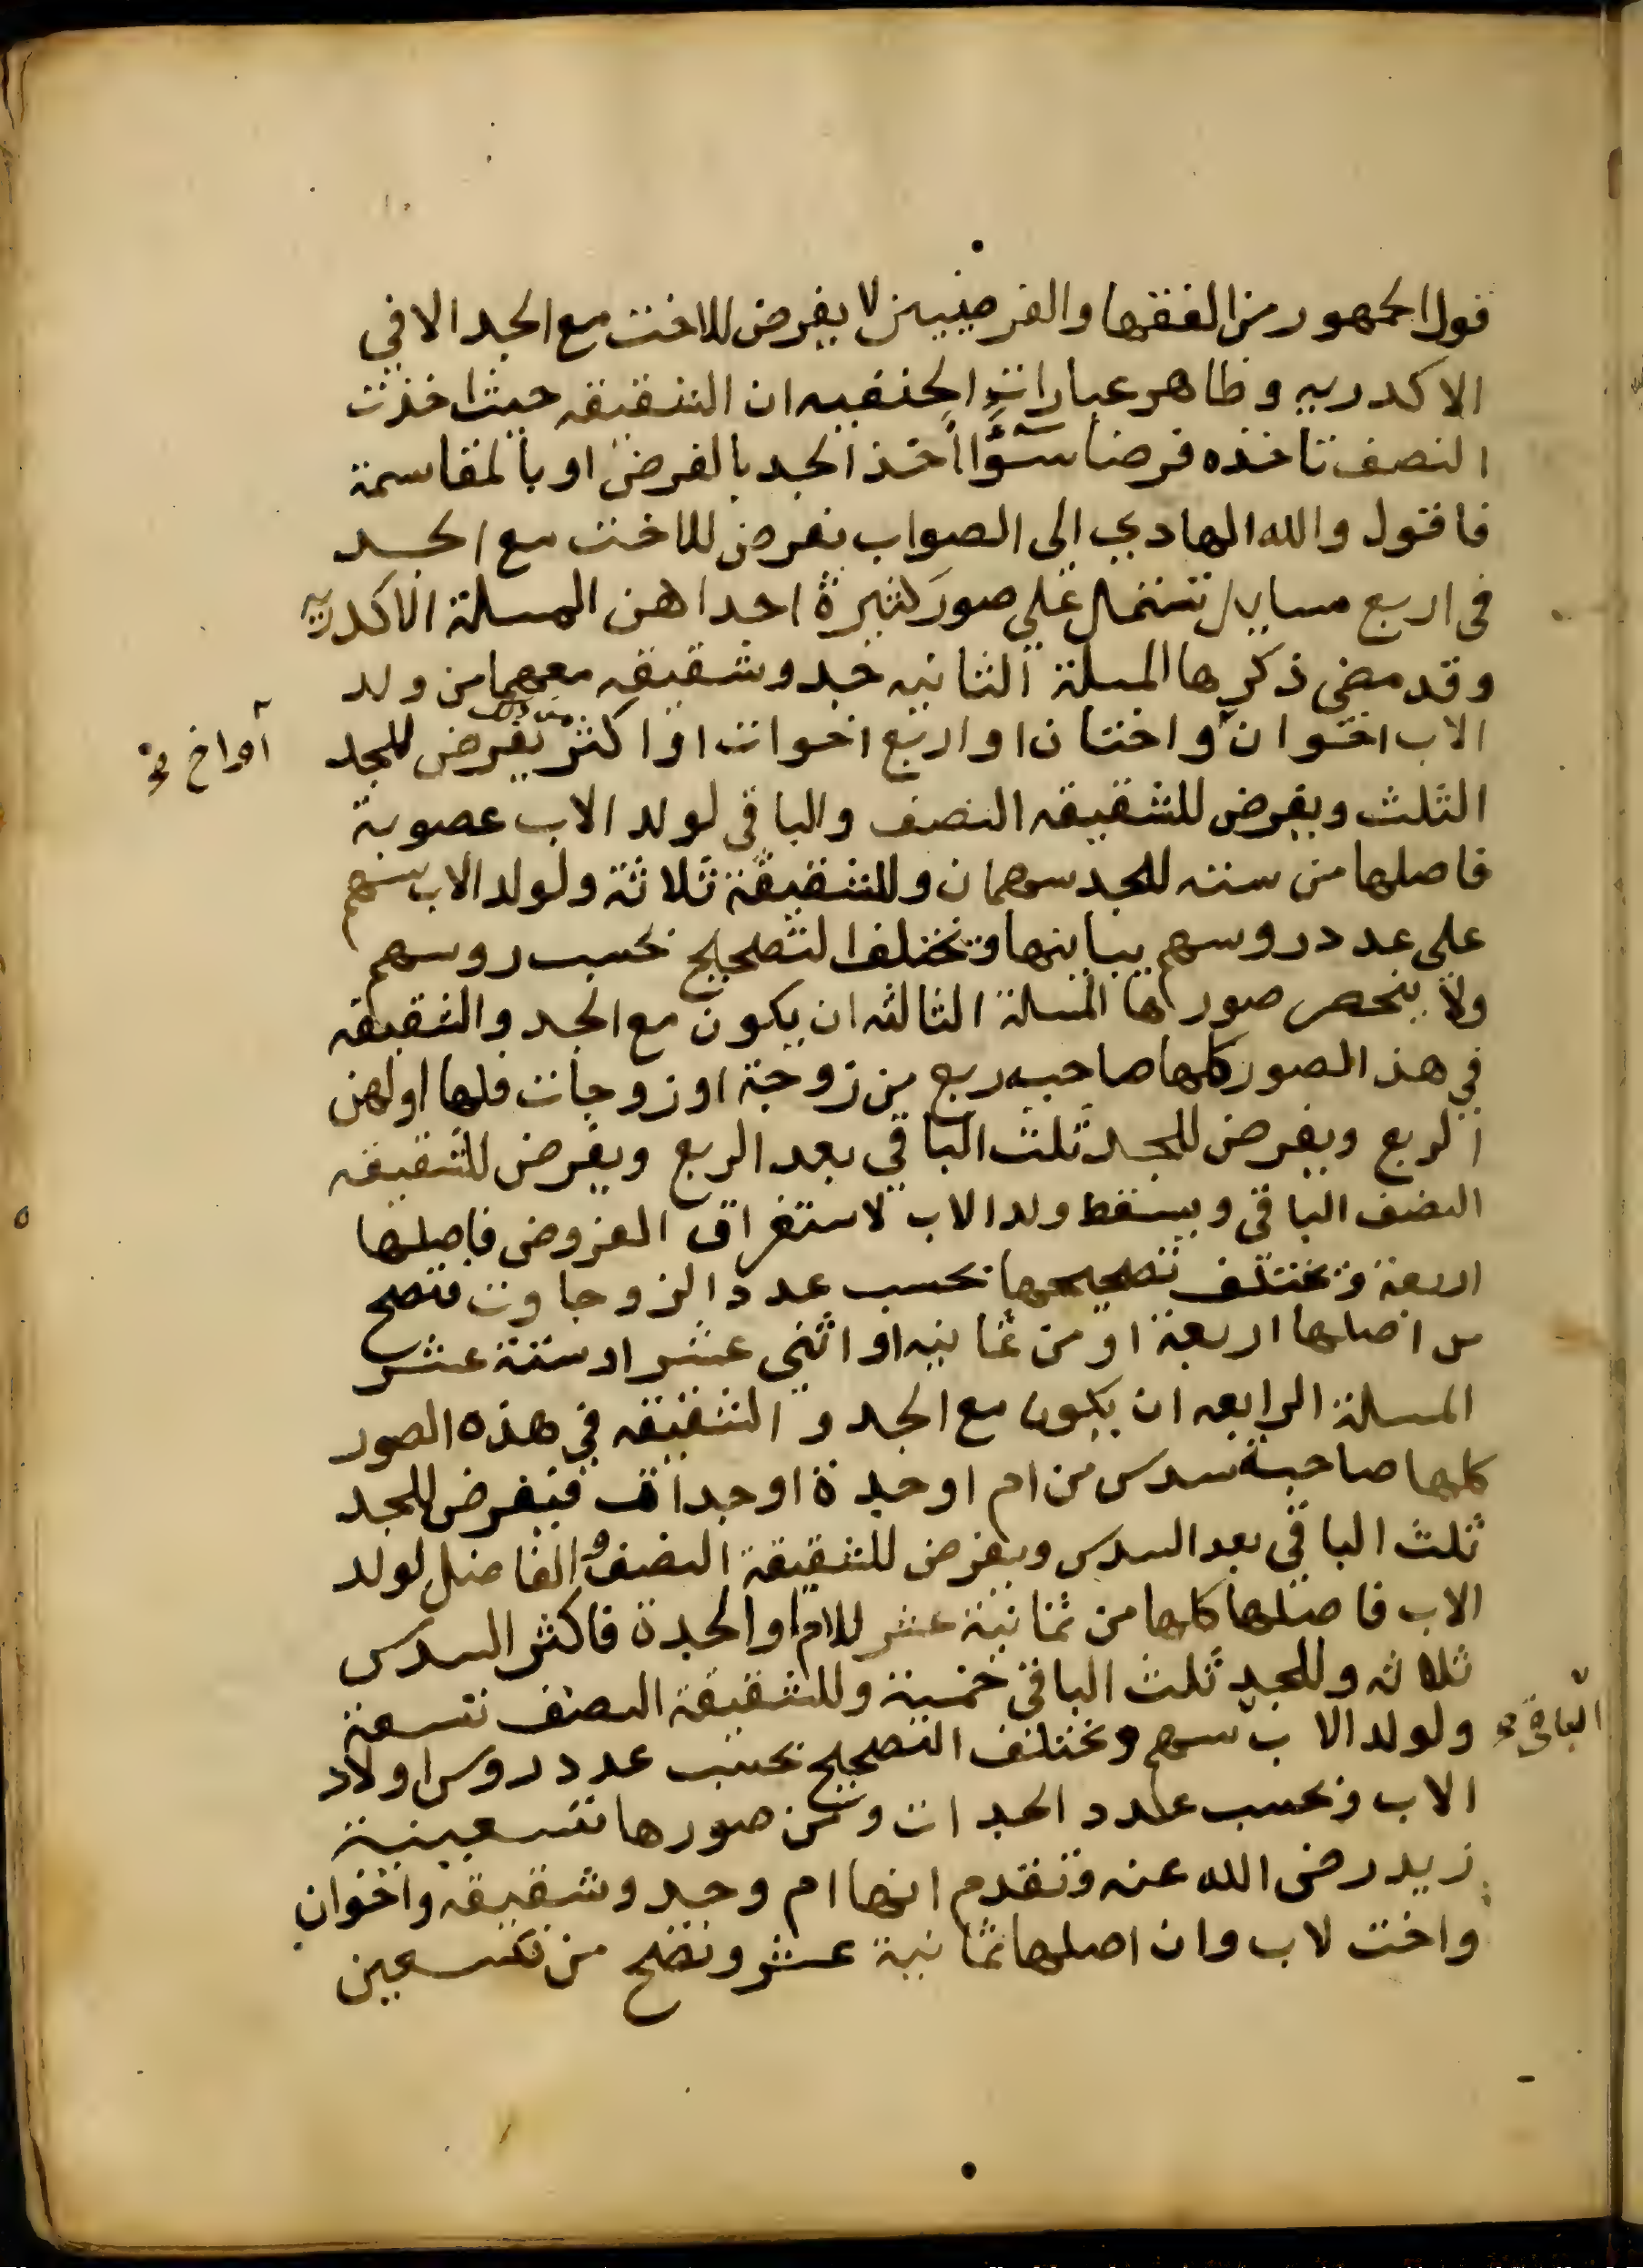 قول الجمهور من الفقها والفرضيين لا يفرض للاخت مع الجد الا في
الاكدريه وظاهر عبارات الحنفيه ان الشقيقه حيث اخذت
النصف تاخذه فرضا سوّاً اخذ الجد بالفرض او بالمقاسمة
فاقول والله الهادي الى الصواب يفرض للاخت مع الجد
في اربع مسايل تشتمل على صور كثيرة احداهن المسلة الاكدريه
وقد مضى ذكرها المسلة الثانيه جد وشقيقه معهما من ولد
الاب اخوان واختان او اربع اخوات او اكثر يفرض للجد
او اخ
الثلث ويفرض للشقيقه النصف والباقي لولد الاب عصوبة
فاصلها من سته للجد سهمان وللشقيقة ثلاثة ولولد الاب سهم
على عدد روسهم يباينها وتختلف التصحيح بحسب روسهم
ولا ينحصر صورها المسلة الثالثه ان يكون مع الجد والشقيقه
في هذ الصور كلها صاحبه ربع من زوجة او زوجات فلها او لهن
الربع ويفرض للجد ثلث الباقي بعد الربع ويفرض للشقيقه
النصف الباقي ويسقط ولد الاب لاستغراق الفروض فاصلها
اربعة وتختلف تصحيحها بحسب عدد الزوجاوت فتصح
من اصلها اربعة او من ثمانيه او اثنى عشر او ستة عشر
المسلة الرابعه ان يكون مع الجد و الشقيقه في هذه الصور
كلها صاحبة سدس من ام او جدة او جدات فيفرض للجد
ثلث الباقي بعد السدس ويفرض للشقيقة النصف و الفاضل لولد
الاب فاصلها كلها من ثمانية عشر للام او الجدة فاكثر السدس
ثلاثه وللجد ثلث الباقي خمسة وللشقيقة النصف تسعة
الباقي
ولولد الاب سهم وتختلف التصحيح بحسب عدد روس اولاد
الاب وبحسب عدد الجدات ومن صورها تسعينية
زيد رضى الله عنه وتقدم انها ام وجد وشقيقه واخوان
واخت لاب وان اصلها ثمانية عشر وتصح من تسعين